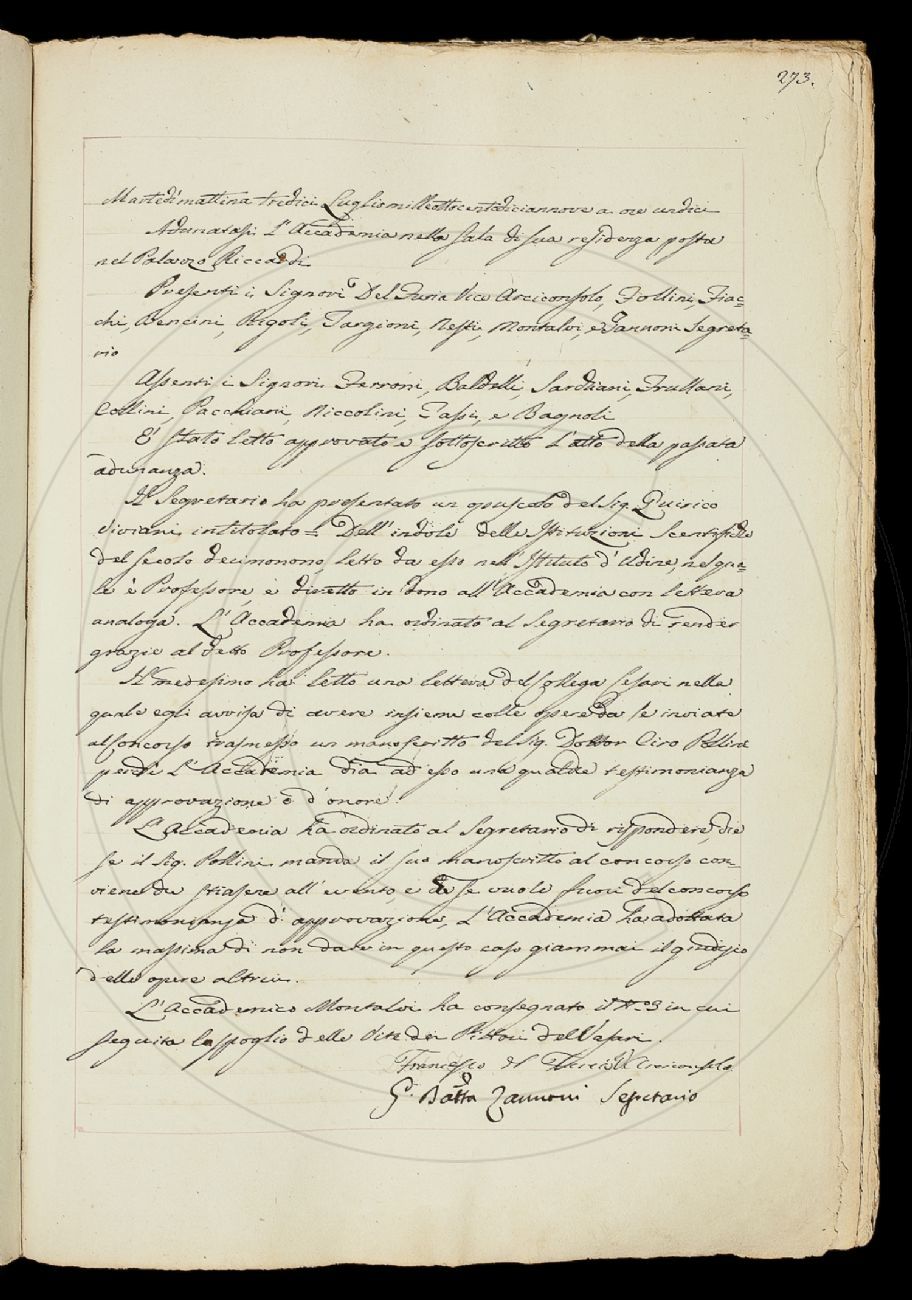 273.
Martedì mattina tredici Luglio mille ottocentodiciannove a ore undici
Adunatasi L'Accademia nella sala di sua residenza posta
nel Palazzo Riccardi
Presenti i Signori Del Furia Vice Arciconsolo, Follini, Fiac=
chi, Bencini, Rigoli, Targioni, Nesti, Montalvi, e Zannoni Segreta=
rio
Assenti i Signori Ferroni, Baldelli, Sarchiani, Frullani,
Collini, Pacchiani, Niccolini, Tassi, e Bagnoli
E' stato letto approvato e sottoscritto l'atto della passata
adunanza.
Il Segretario ha presentato un opuscolo del Sig. Quirico
Viviani intitolato = Dell'indole delle Istituzioni Scentifiche
del secolo decimonono letto da esso nell'Istituto d'Udine, nel qua=
le è Professore, e diretto in dono all'Accademia con lettera
analoga. L'Accademia ha ordinato al Segretario di render
grazie al detto Professore.
Il medesimo ha letto una lettera del Collega Cesari nella
quale egli avvisa di avere insieme colle opere da se inviate
al Concorso trasmesso un manoscritto del Sig. Dottor Ciro Pollini
perchè L'Accademia dia ad esso una qualche testimonianza
di approvazione o d'onore.
L'Accademia ha ordinato al Segretario di rispondere, che
se il Sig. Pollini manda il suo manoscritto al concorso con=
viene che stiasene all'evento e che se vuole fuori del concorso
testimonianza d'approvazione, L'Accademia ha adottata
la massima di non dare in questo caso giammai il giudizio
delle opere altrui.
L'Accademico Montalvi ha consegnato il N.o 3 in cui
seguita lo spoglio delle Vite dei Pittori del Vasari.
Francesco del Furia V. Arciconsolo
G. Batta Zannoni Segretario